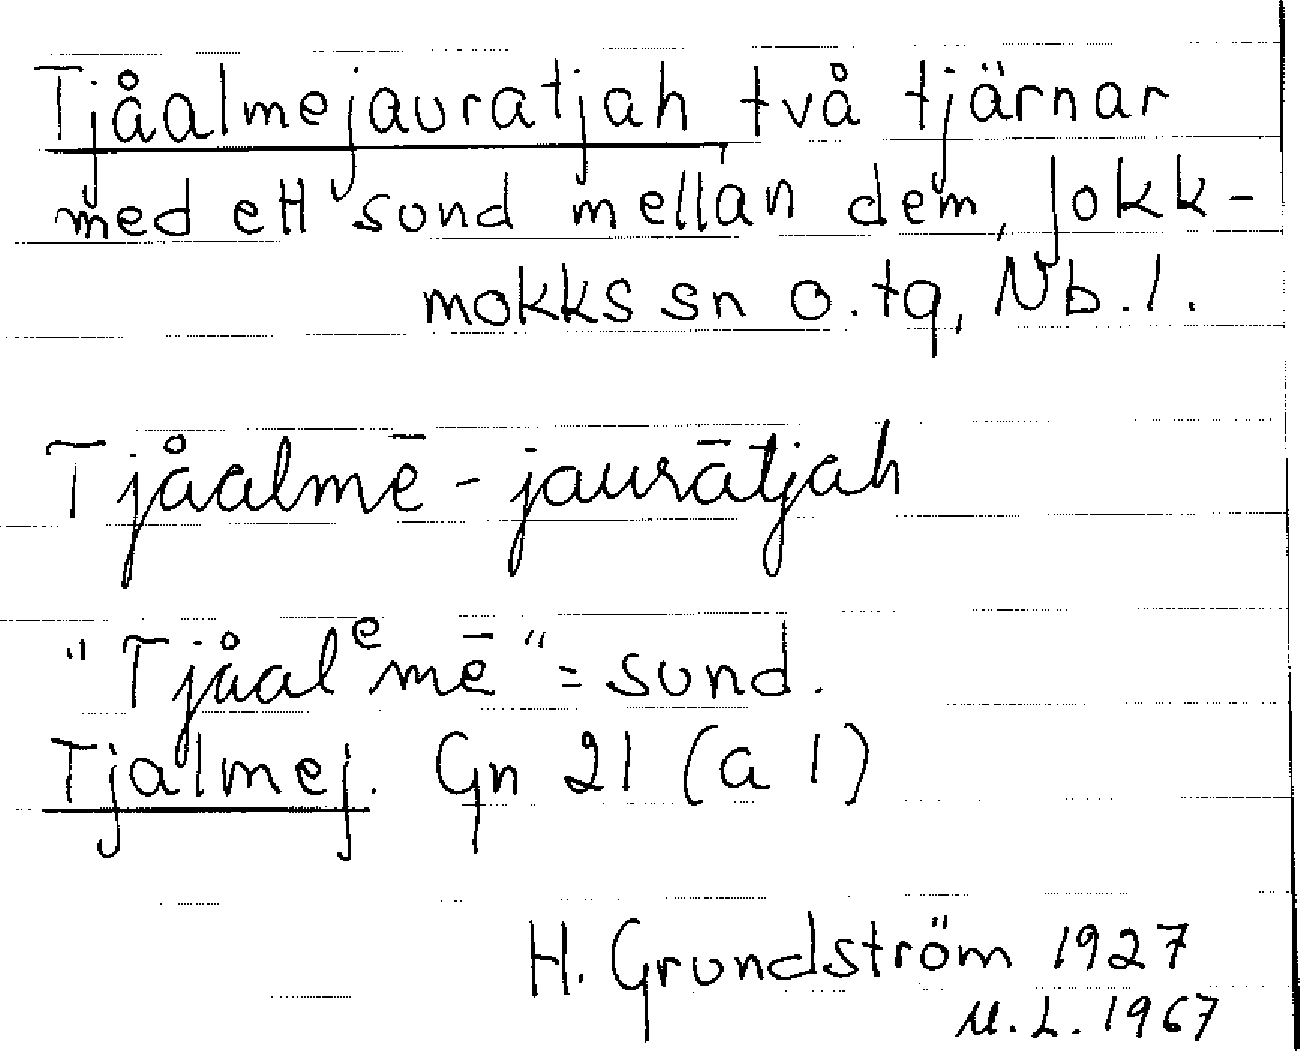 Tjåalmejauratjah två tjärnar
med ett sund mellan dem, Jokk-
mokks sn o. tg, Nb. l.
Tjåalmē - jaurātjah
"Tjåalᵉmē" = sund.
Tjalmej. Gn 21 (a 1)
H. Grundström 1927
M. L. 1967